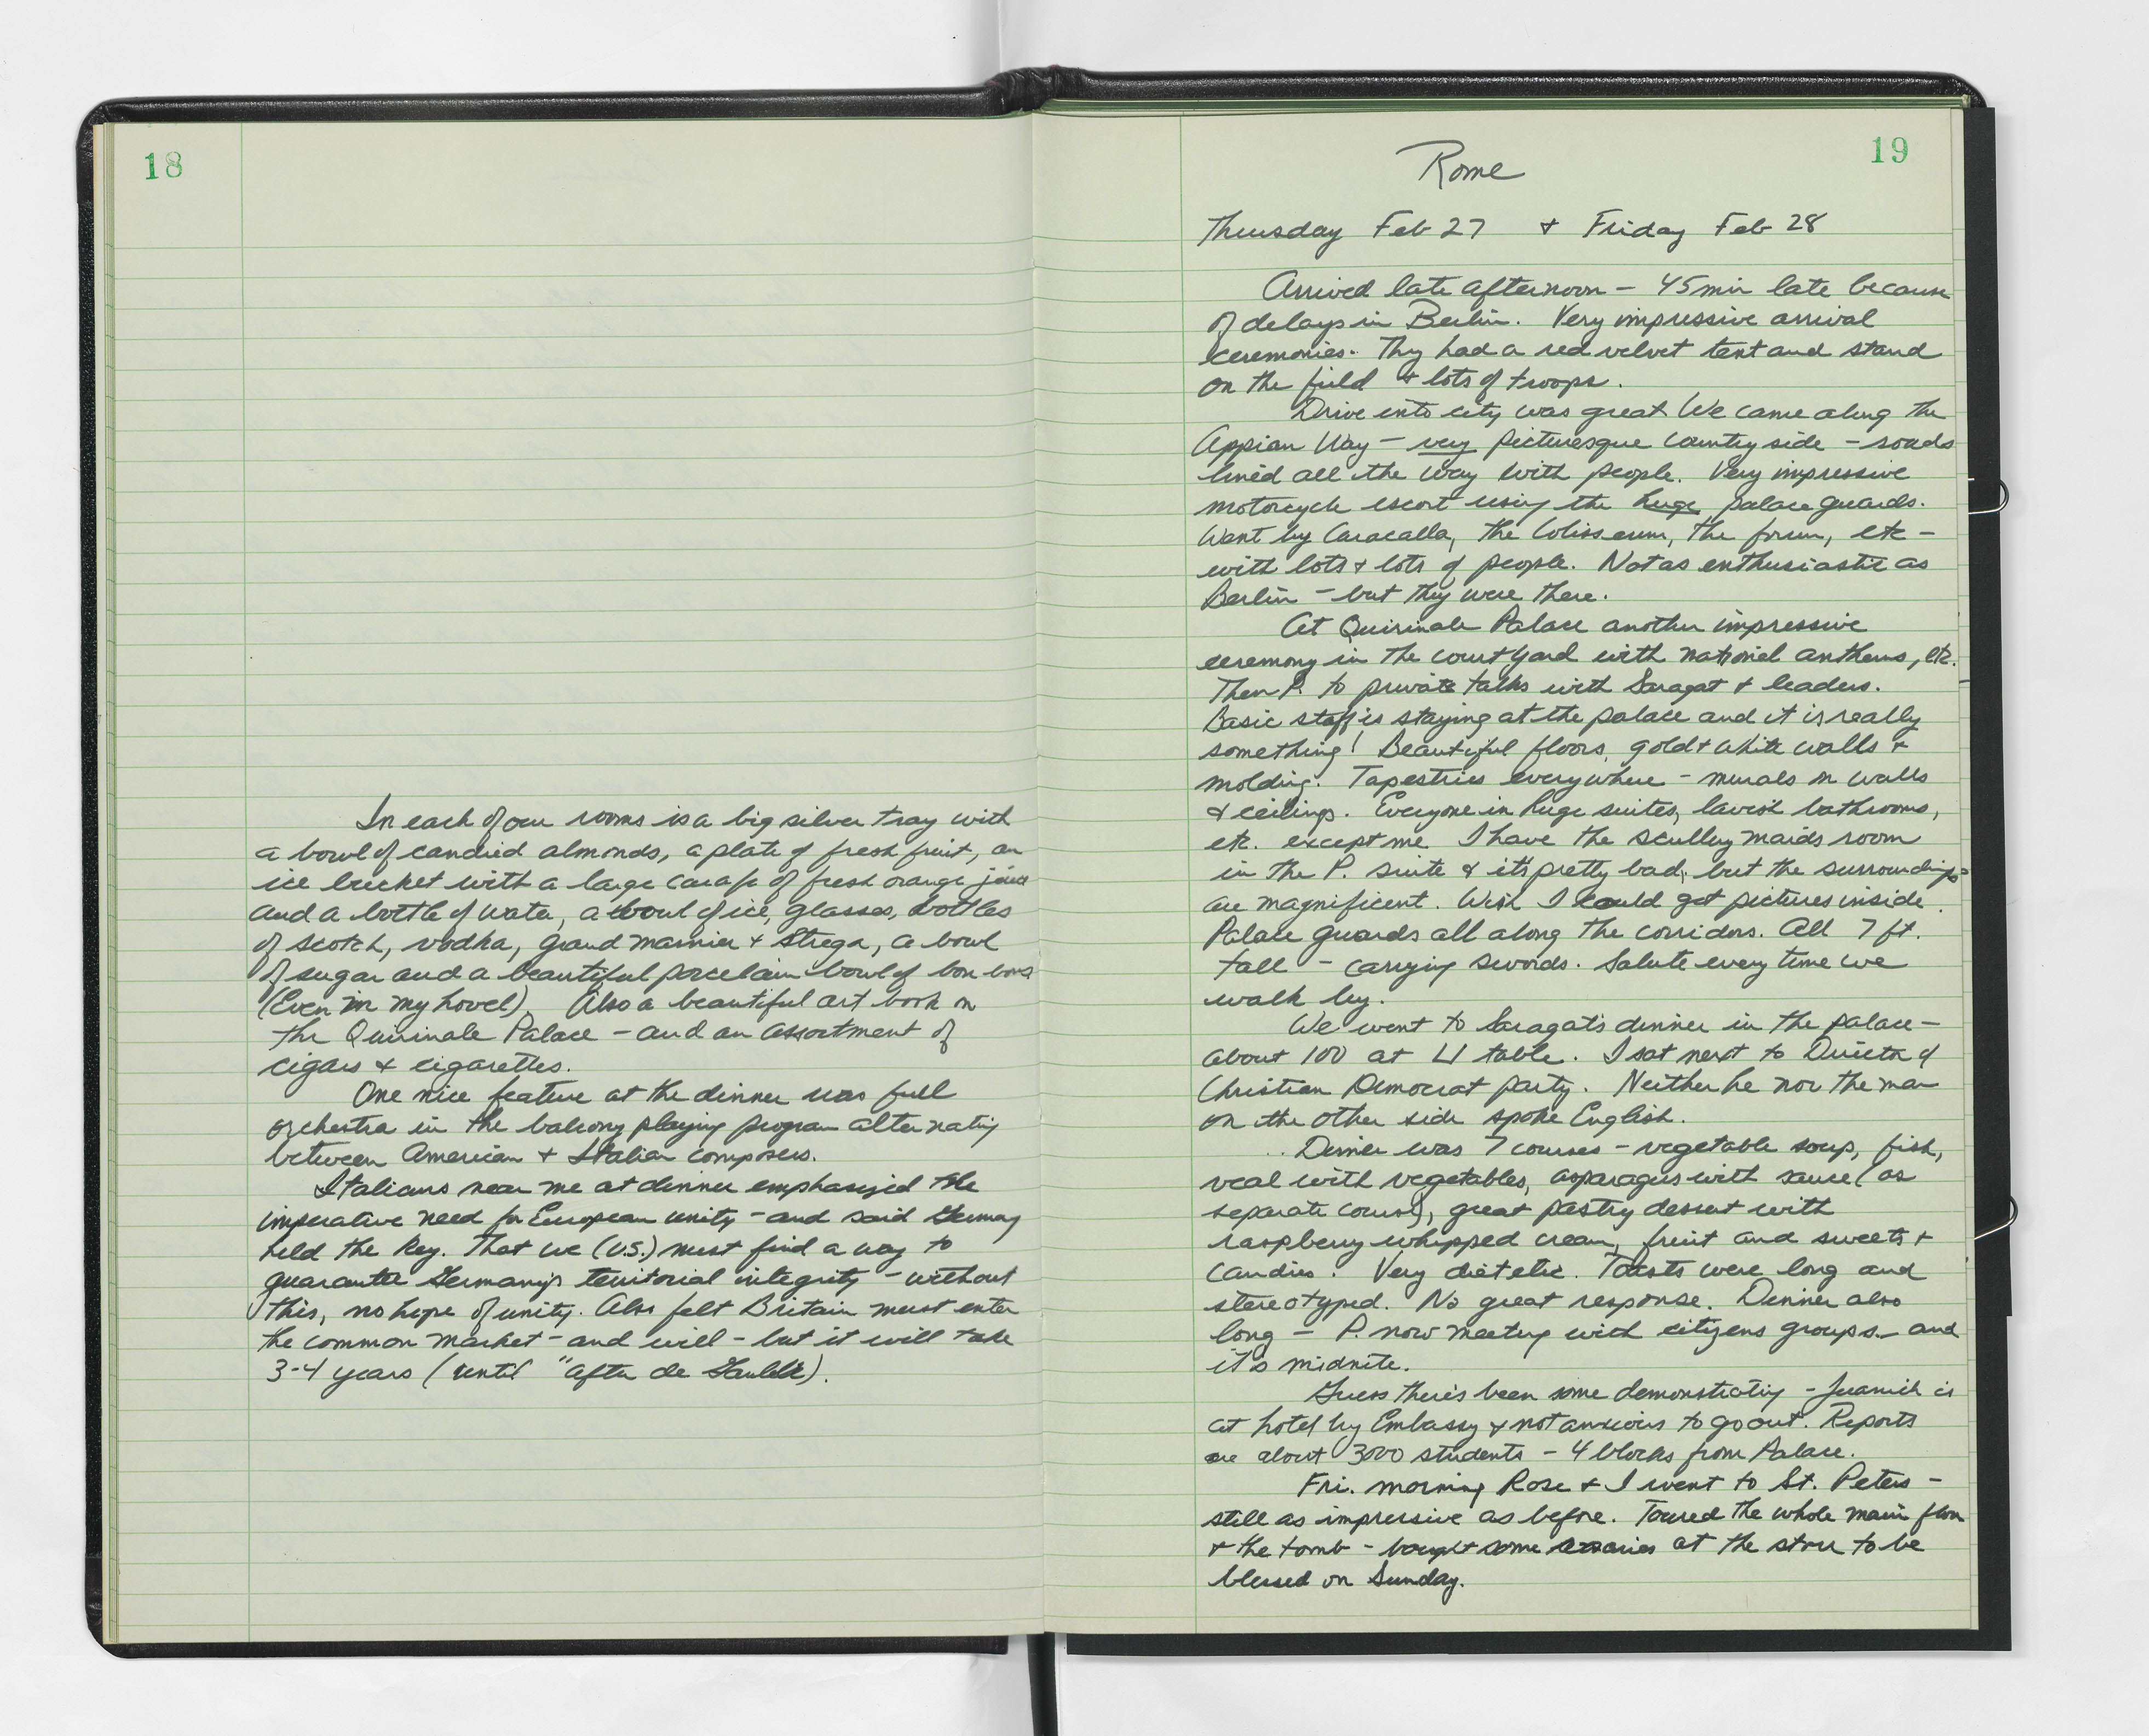 18
In each of our rooms is a big silver tray with
a bowl of candied almonds, a plate of fresh fruit, an
ice bucket with a large carafe of fresh orange juice
and a bottle of water, a bowl of ice, glasses, bottles
of scotch, vodka, grand marnier + Strega, a bowl
of sugar and a beautiful porcelain bowl of bon bons
(Even in my hovel). Also a beautiful art book on
the Quirinale Palace - and an assortment of
cigars + cigarettes.
One nice feature at the dinner was full
orchestra in the balcony playing program alternating
between American + Italian composers.
Italians near me at dinner emphasized the
imperative need for European unity - and said Germany
held the key. That we (U.S.) must find a way to
guarantee Germany's territorial integrity - without
this, no hope of unity. Also felt Britain must enter
the common market - and will - but it will take
3-4 years (until "after de Gaulle).
19
Rome
Thursday Feb 27 + Friday Feb 28
Arrived late afternoon - 45 min late because
of delays in Berlin. Very impressive arrival
ceremonies. They had a red velvet tent and stand
on the field + lots of troops.
Drive into city was great We came along the
Appian Way - very picturesque countryside - roads
lined all the way with people. Very impressive
motorcycle escort using the huge palace guards.
Went by Caracalla, the Colisseum, the forum, etc -
with lots + lots of people. Not as enthusiastic as
Berlin - but they were there.
At Quirinale Palace another impressive
ceremony in the courtyard with national anthems, etc.
Then P. to private talks with Saragat + leaders.
Basic staff is staying at the palace and it is really
something! Beautiful floors, gold + white walls +
molding. Tapestries everywhere - murals on walls
+ ceilings. Everyone in huge suites, lavish bathrooms,
etc. except me. I have the scullery maids room
in the P. suite & it's pretty bad, but the surroundings
are magnificent. Wish I could get pictures inside.
Palace guards all along the corridors. All 7 ft.
tall - carrying swords. Salute every time we
walk by.
We went to Saragat's dinner in the palace -
about 100 at U table. I sat next to Director of
Christian Democrat party. Neither he nor the man
on the other side spoke English.
Dinner was 7 courses - vegetable soup, fish,
veal with vegetables, asparagus with sauce (as
separate course), great pastry dessert with
raspberry whipped cream, fruit and sweets +
candies. Very dietetic. Toasts were long and
stereotyped. No great response. Dinner also
long - P. now meeting with citizens groups - and
it's midnite.
Guess there's been some demonstrating - is
at hotel by Embassy & not anxious to go out. Reports
are about 3000 students - 4 blocks from Palace.
Fri. morning Rose + I went to St. Peters -
still as impressive as before. Toured the whole main floor
+ the tomb - bought some rosaries at the store to be
blessed on Sunday.